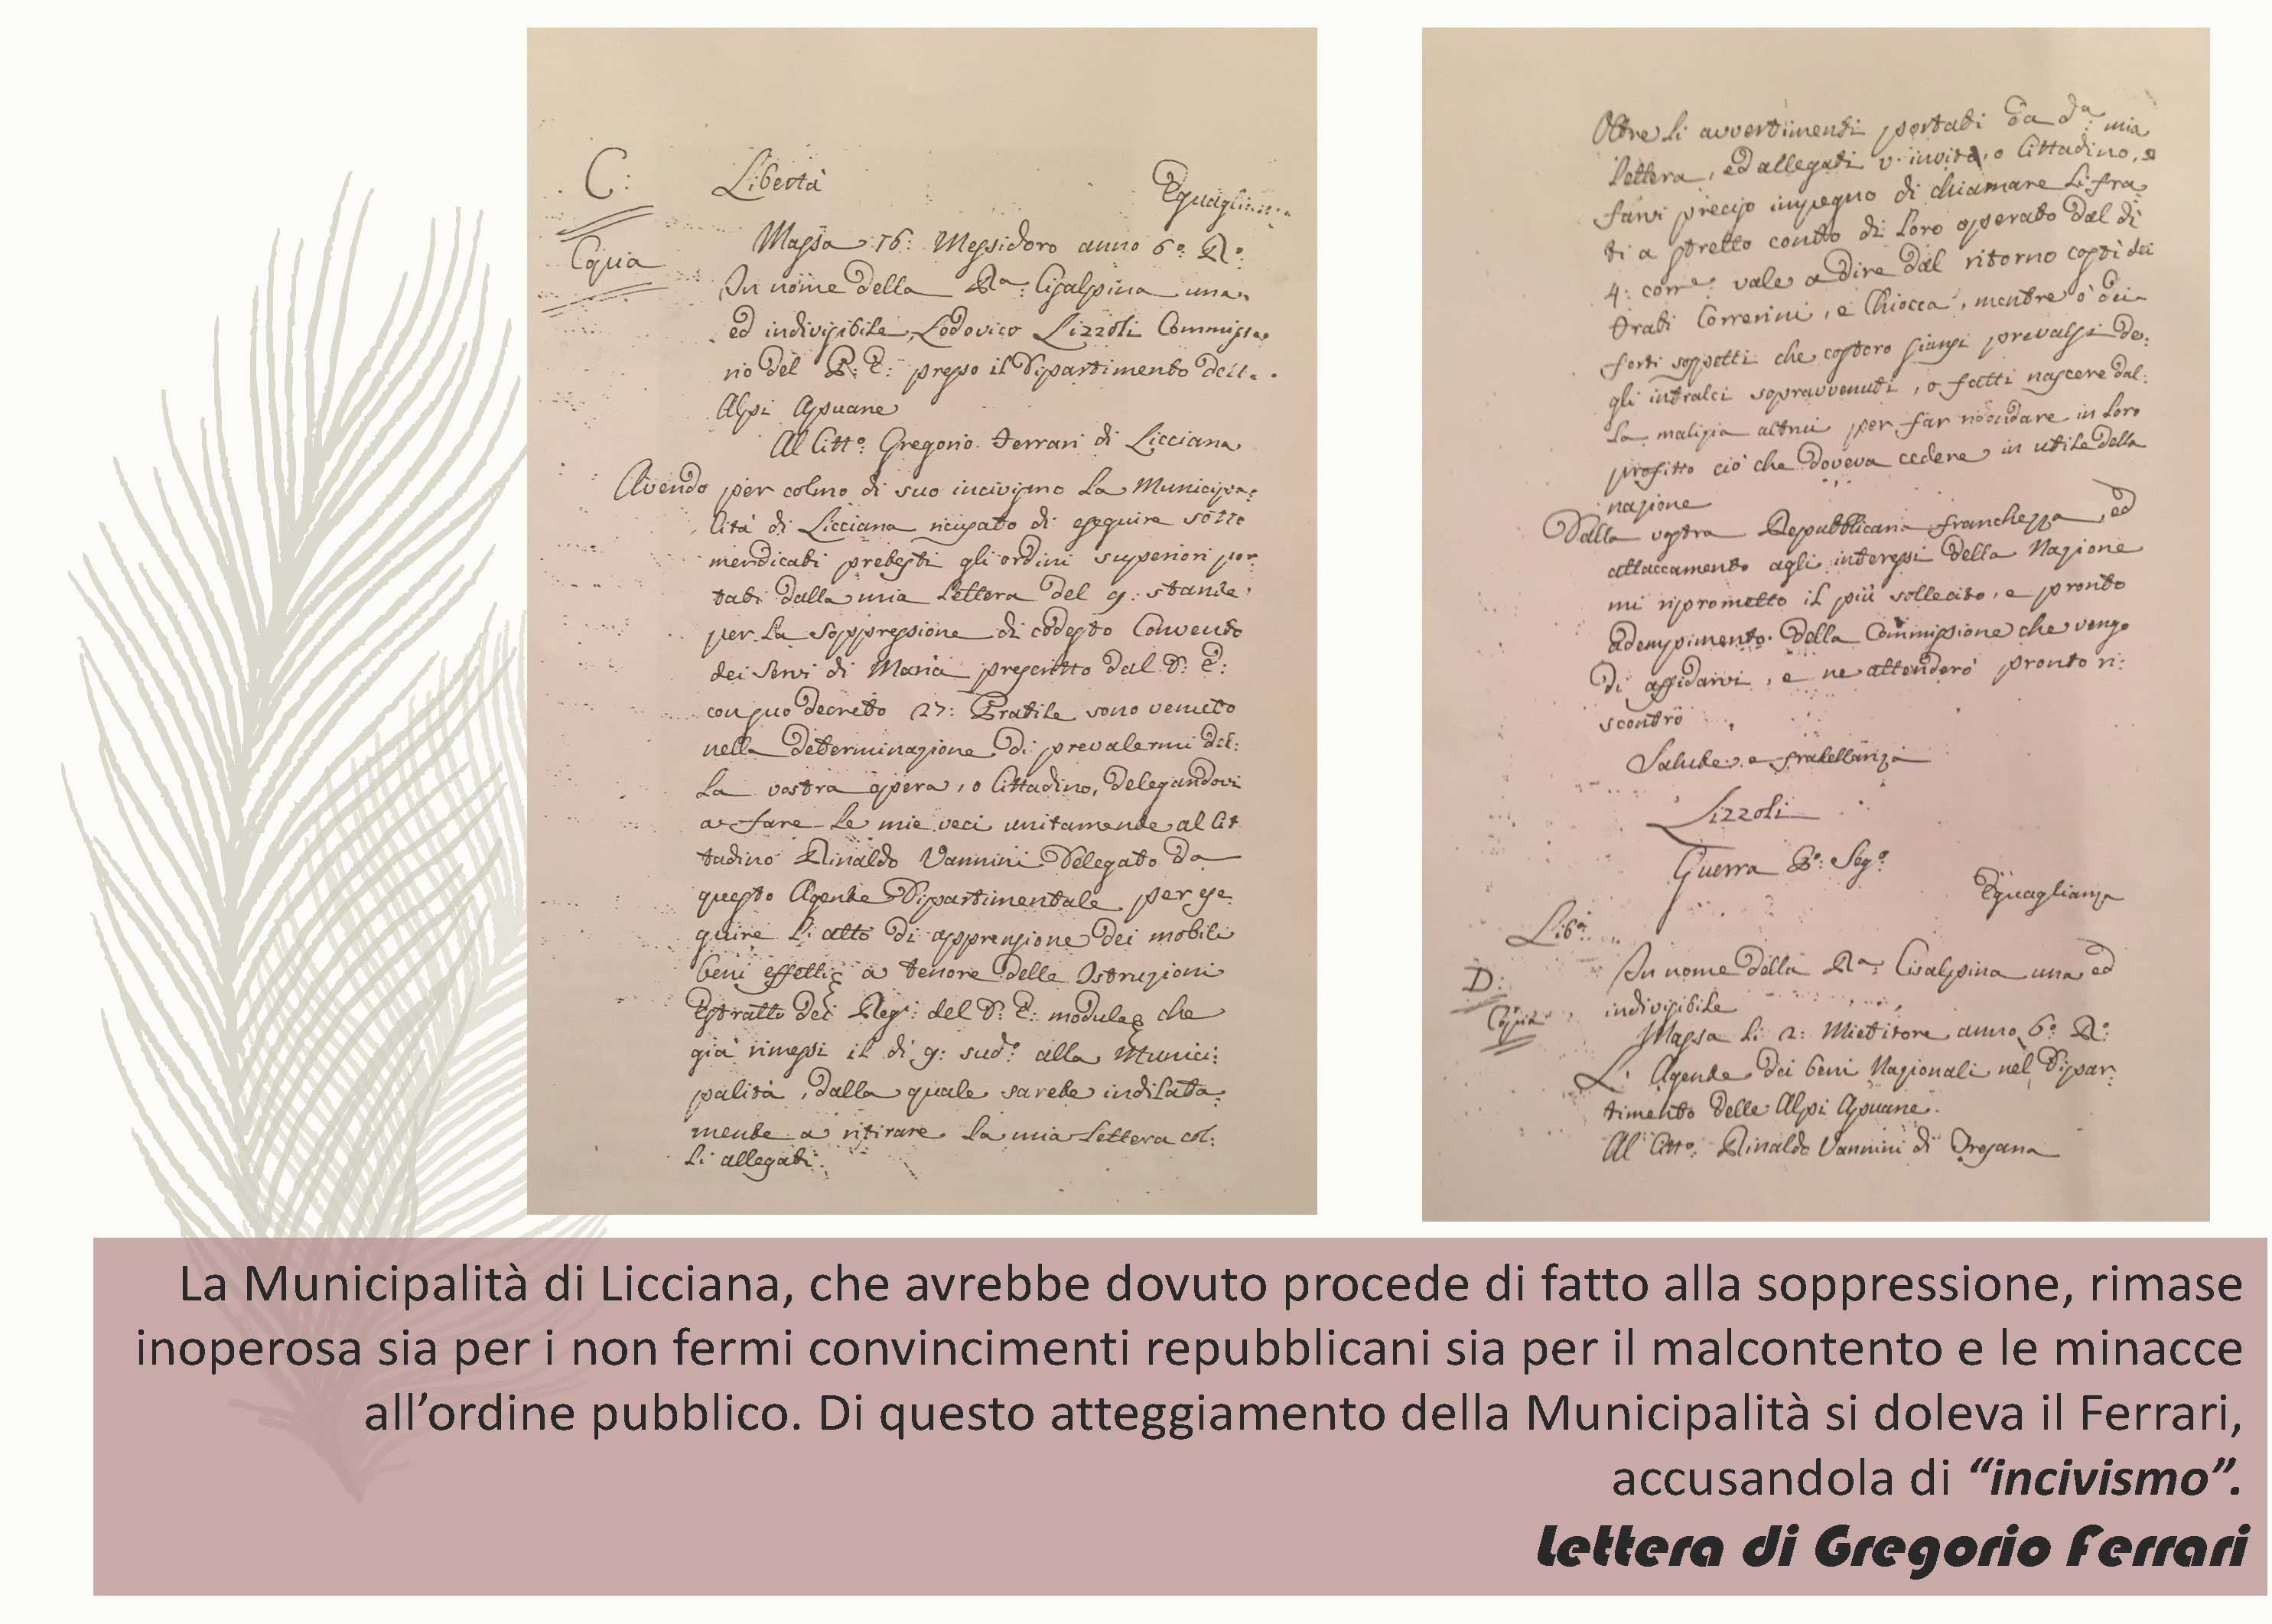 C:
Copia
Libertà
Eguaglian
Massa 16: Messidoro anno 6º R.º
In nome della Rª: Cisalpina una
ed indivisibile, Lodovico Lizzoli Commissa
rio del P. E: presso il Dipartimento dell
Alpi Apuane
Al Citt.º Gregorio Ferrari di Licciana
Avendo per colmo di suo incivismo la Municipa:
lità di Licciana ricusato di eseguire sotto
mendicati pretesti gli ordini superiori por
tati dalla mia lettera del 9: stante
per la soppressione di codesto Convento
dei Servi di Maria prescritto dal D: E:
con suo decreto 27: Pratile sono venuto
nella determinazione di prevalermi del:
la vostra opera, o Cittadino, delegandovi
a fare le mie veci unitamente al Cit
tadino Rinaldo Vannini Delegato da
questo Agente Dipartimentale per ese
guire l'atto di apprensione dei mobili
beni effetti a tenore delle Istruzioni
Estratto dei Reg: del D: E: che
già rimessi il dì 9: sudº alla Munici:
palità, dalla quale sarete indilata:
mente a ritirare la mia lettera col:
li allegati.
Oltre li avvertimenti portati da dª: mia
lettera, ed allegati v'invito, o Cittadino, a
farvi preciso impegno di chiamare li fra
ti a stretto conto di loro operato dal dì
4: corrº: vale a dire dal ritorno costì dei
Frati Correrini, e Chiocca, mentre ò dei
forti sospetti che costoro siansi prevalsi de:
gli intralci sopravvenuti, o fatti nascere dal:
la malizia altrui per far ridondare in loro
profitto ciò che doveva cedere in utile della
nazione
Dalla vostra Repubblicana franchezza, ed
attaccamento agli interessi della Nazione
mi riprometto il più sollecito, e pronto
adempimento della Commissione che vengo
di affidarvi, e ne attenderò pronto ri:
scontro
Salute e fratellanza
Lizzoli
Guerra Pº: Segº
Libª:
Eguaglianza
D:
Copia
In nome della Rª: Cisalpina una ed
indivisibile
Massa li 2: Mietitore anno 6º R.º
L'Agente dei beni Nazionali nel Dipar:
timento delle Alpi Apuane.
Al Citt.º: Rinaldo Vannini di
La Municipalità di Licciana, che avrebbe dovuto procede di fatto alla soppressione, rimase
inoperosa sia per i non fermi convincimenti repubblicani sia per il malcontento e le minacce
all’ordine pubblico. Di questo atteggiamento della Municipalità si doleva il Ferrari,
accusandola di “incivismo”.
Lettera di Gregorio Ferrari